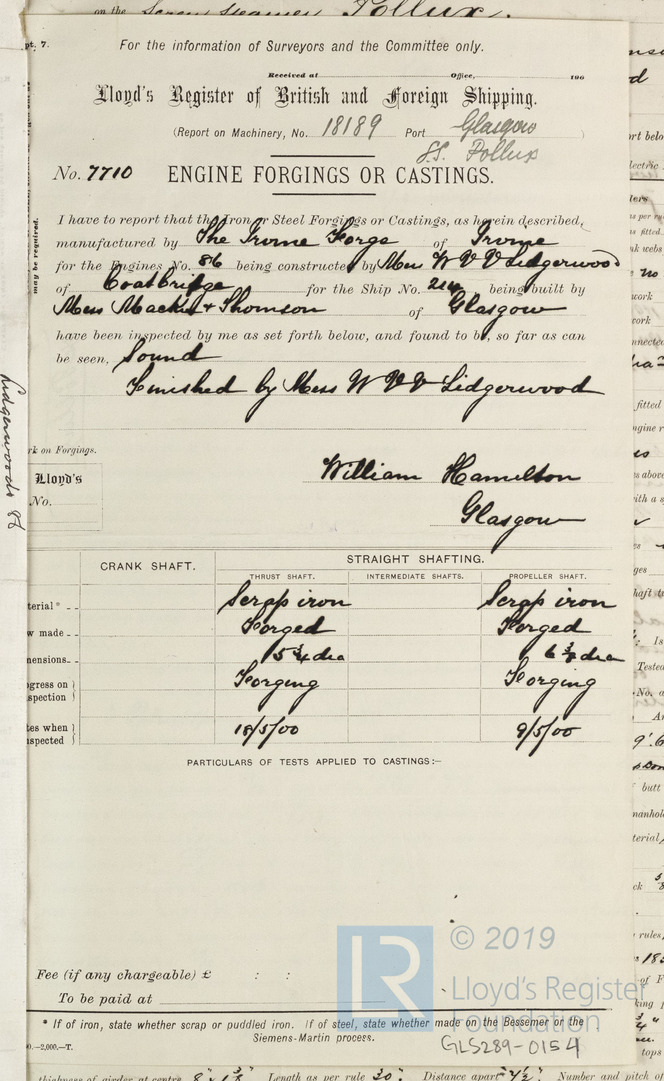 on the Screw Steamer Pollux.
pt. 7.
For the information of Surveyors and the Committee only.
Received at Office, 190
Lloyd's Register of British and Foreign Shipping.
(Report on Machinery, No. 18189 Port Glasgow )
S.S. Pollux
No. 7710 ENGINE FORGINGS OR CASTINGS.
I have to report that the Iron or Steel Forgings or Castings, as herein described,
manufactured by The Irvine Forge of Irvine
for the Engines No. 86 being constructed by Mess W V V Lidgerwood
of Coatbridge for the Ship No. 214 being built by
Mess Mackie & Thomson of Glasgow
have been inspected by me as set forth below, and found to be, so far as can
be seen, Sound
Finished by Mess W V V Lidgerwood
may be required.
Lidgerwoods 86
rk on Forgings.
Lloyd's
No.
William Hamilton
Glasgow
CRANK SHAFT. STRAIGHT SHAFTING.
THRUST SHAFT. INTERMEDIATE SHAFTS. PROPELLER SHAFT.
terial* Scrap iron Scrap iron
w made Forged Forged
mensions 5 3/4 dia 6 3/8 dia
ogress on
spection Forging Forging
tes when
spected 18/5/00 9/5/00
PARTICULARS OF TESTS APPLIED TO CASTINGS:—
© 2019
LR
Lloyd's Register
Foundation
Fee (if any chargeable) £ : :
To be paid at
* If of iron, state whether scrap or puddled iron. If of steel, state whether made on the Bessemer or the
Siemens-Martin process.
0.—2,000.—T.
GLS289-0154
thickness of girder at centre Length as per rule 30" Distance apart Number and pitch of